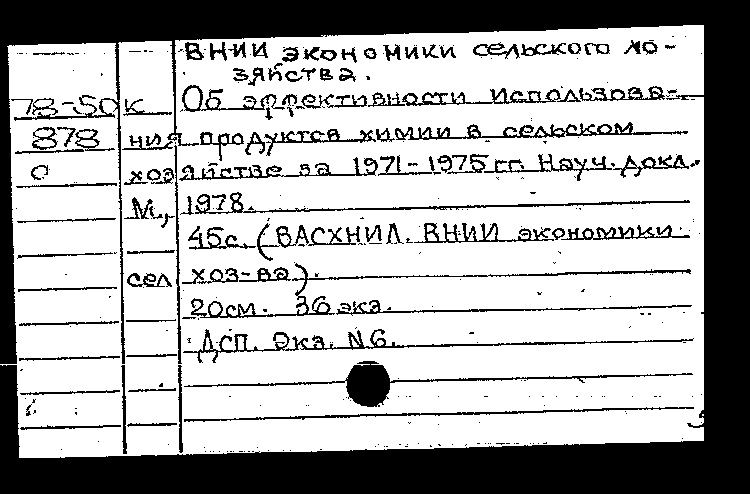 ВНИИ экономики сельского хо-
зяйства.
78-50к Об эффективности использова-
878 ния продуктов химии в сельском
0 хозяйстве за 1971-1975 гг. Науч. докл.
М., 1978.
45с. (ВАСХНИЛ. ВНИИ экономики
сел хоз-ва).
20см. 36 экз.
ДСП. Экз. N6.